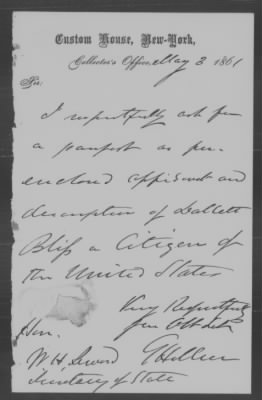 Custom House, New-York,
Collector's Office, May 3 1861
Sir,
I respectfully ask for
a passport as per
enclosed affidavit and
description of Dallett
Bliss a Citizen of
the United States
Very Respectfully
Hon.
W H Seward
Secretary of State